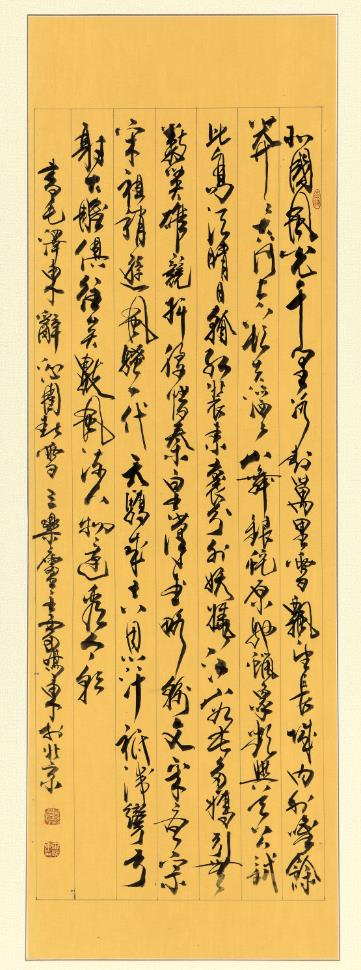 北國風光千里冰封萬里雪飄望長城内外唯餘
莽莽大河上下頓失滔滔山舞銀蛇原馳蠟象欲與天公試
比高須晴日看紅裝素裹分外妖嬈江山如此多嬌引無
數英雄競折腰惜秦皇漢武略輸文采唐宗
宋祖稍遜風騷一代天驕成吉思汗祇識彎弓
射大雕俱往矣數風流人物還看今朝
書毛澤東辭沁園春雪三樂堂主東於北京